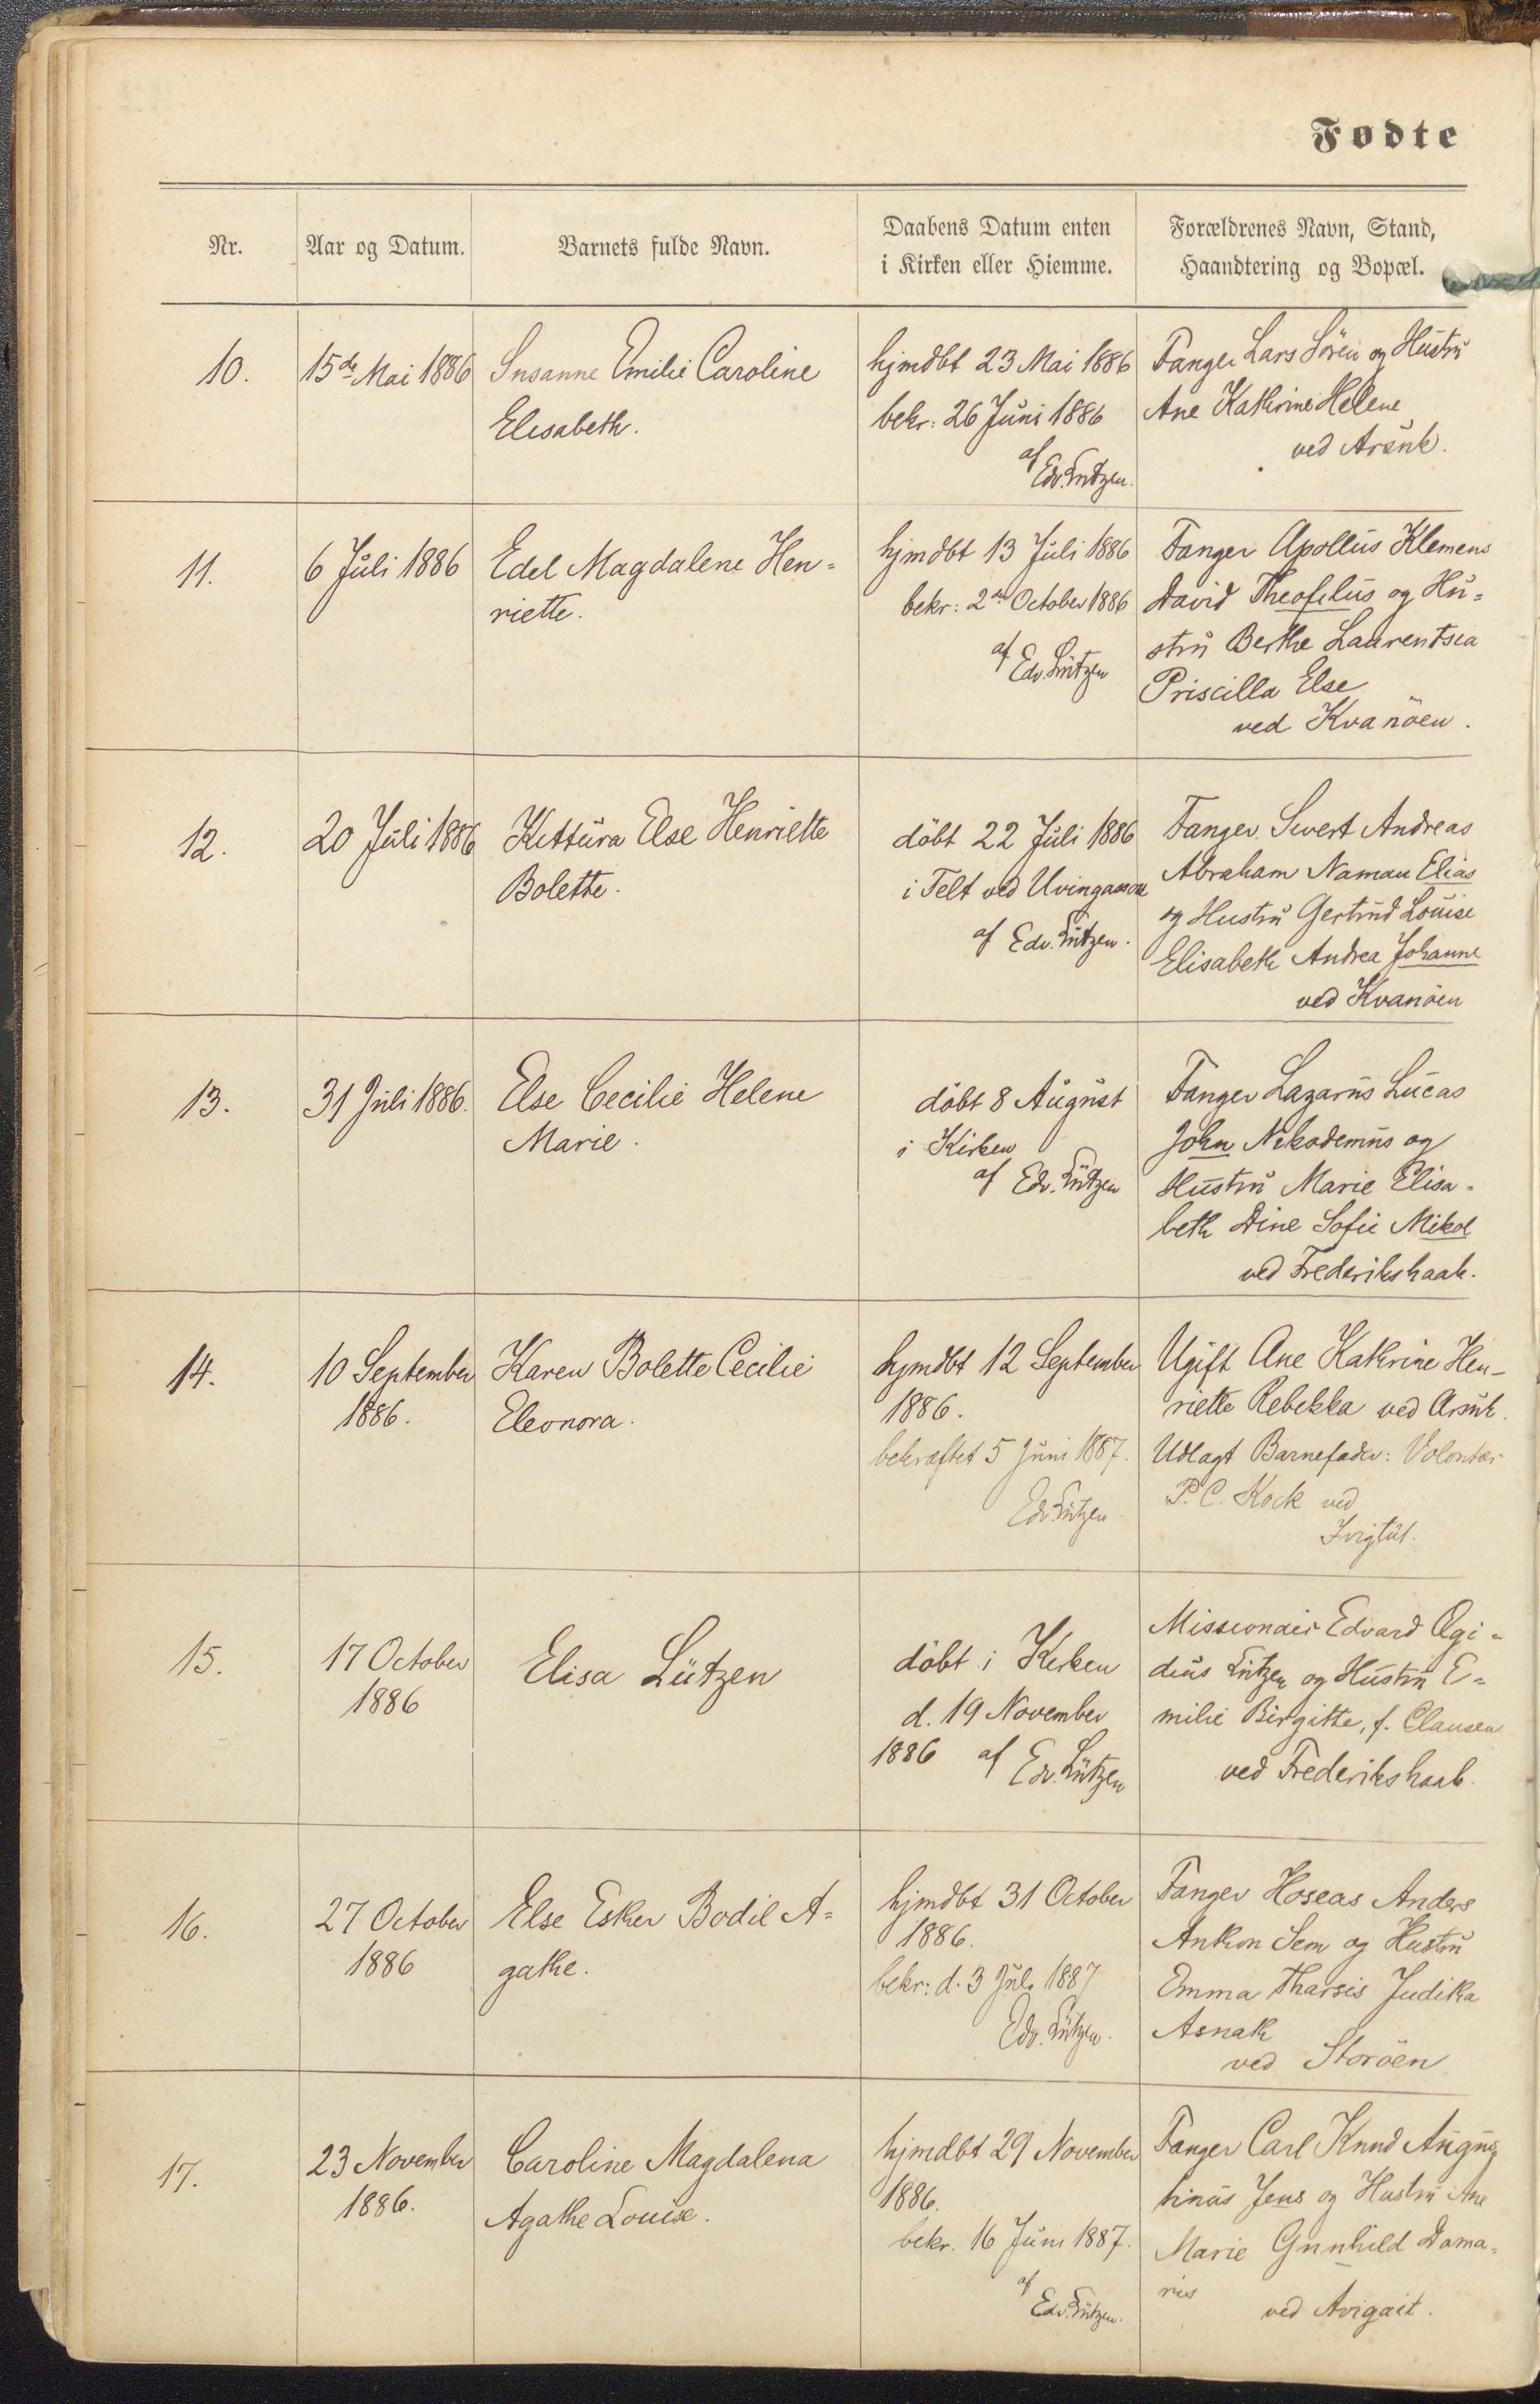 Fødte
Nr.
Aar og Datum.
Barnets fulde Navn.
Daabens Datum enten
i Kirken eller Hiemme.
Forældrenes Navn, Stand,
Haandtering og Bopæl.
10.
15de Mai 1886
Susanne Emilie Caroline
Elisabeth.
hjmdbt 23 Mai 1886
bekr: 26 Juni 1886
af
Edv. Lützen.
Fanger Lars Sören og Hustru
Ane Kathrine Helene
ved Arsuk.
11.
6 Juli 1886
Edel Magdalene Hen=
riette.
hjmdbt 13 Juli 1886
bekr: 2den October 1886
af
Edv. Lützen
Fanger Apollus Klemens
David Theofilus og Hu=
stru Berthe Laurentsia
Priscilla Else
ved Kvanöen.
12.
20 Juli 1886
Kettura Else Henriette
Bolette.
döbt 22 Juli 1886
i Telt ved
af Edv. Lützen.
Fanger Sivert Andreas
Abraham Naman Elias
og Hustru Gertrud Louise
Elisabeth Andrea Johanne
ved Kvanöen
13.
31 Juli 1886.
Else Cecilie Helene
Marie.
döbt 8 August
i Kirken
af Edv. Lützen
Fanger Lazarus Lucas
John Nikodemus og
Hustru Marie Elisa=
beth Dine Sofie Mikal
ved Frederikshaab.
14.
10 September
1886.
Karen Bolette Cecilie
Eleonora.
hjmdbt 12 September
1886.
bekræftet 5 Juni 1887.
Edv. Lützen
Ugift Ane Kathrine Hen-
riette Rebekka ved Arsuk.
Udlagt Barnefader: Volontær
P. C. Kock ved
Ivigtût.
15.
17 October
1886
Elisa Lützen
döbt i Kirken
d. 19 November
1886 af
Edv. Lützen
Missionair Edvard Ægi=
dius Lützen og Hustru E=
milie Birgitte, f. Clausen
ved Frederikshaab.
16.
27 October
1886
Else Ester Bodil A=
gathe.
hjmdbt 31 October
1886.
bekr: d. 3 Juli 1887
Edv. Lützen.
Fanger Hoseas Anders
Anthon Sem og Hustru
Emma Tharsis Judika
Asnath
ved Storöen
17.
23 November
1886.
Caroline Magdalena
Agathe Louise.
hjmdbt 29 November
1886.
bekr. 16 Juni 1887.
af
Edv. Lützen.
Fanger Carl Knud Augus
tinus Jens og Hustru Ane
Marie Gunhild Dama=
ris
ved Avigait.